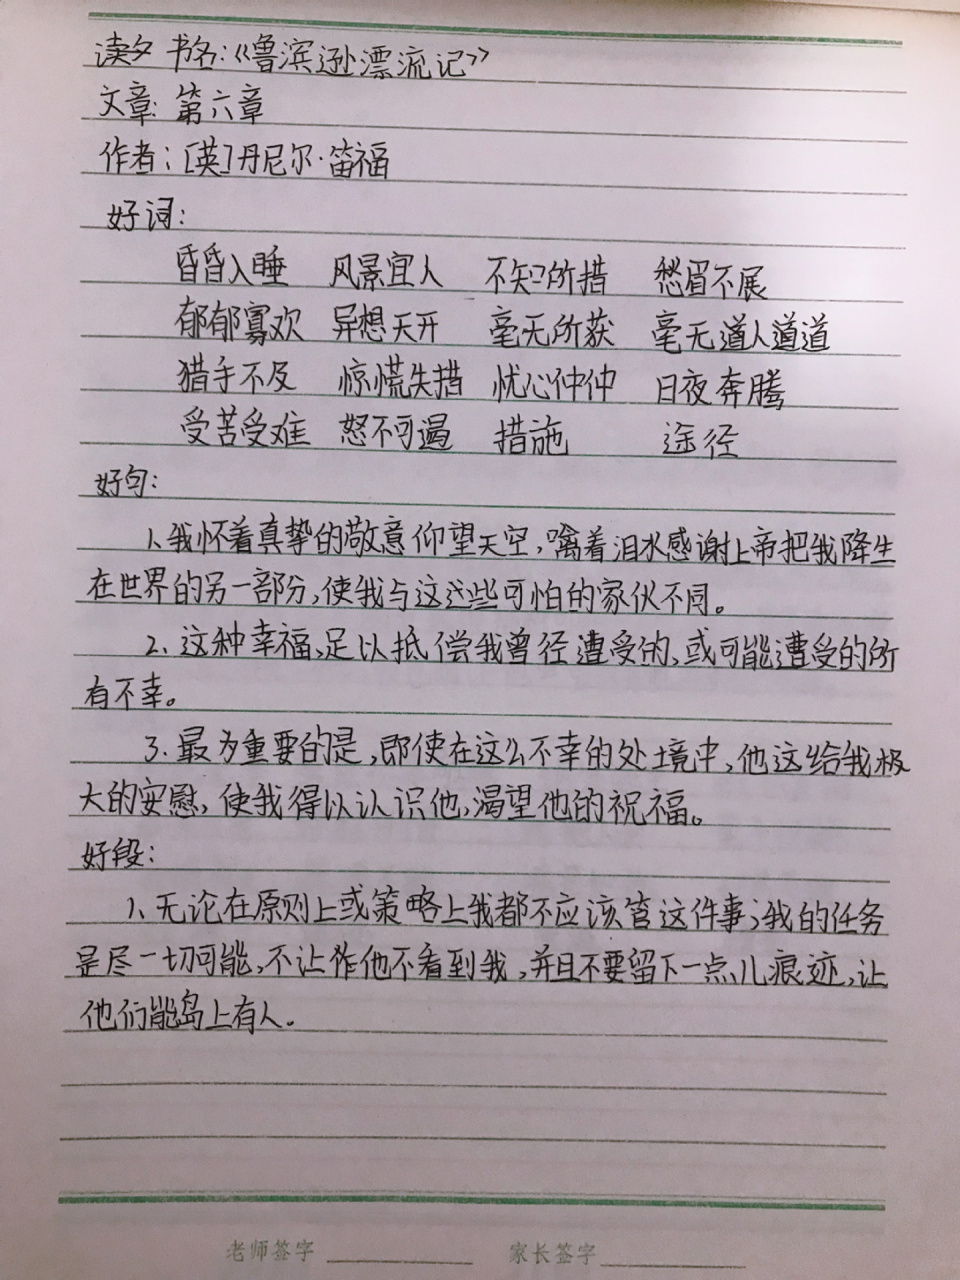 读夕 书名:《鲁滨逊漂流记》
文章: 第六章
作者:[英]丹尼尔·笛福
好词:
昏昏入睡 风景宜人 不知所措 愁眉不展
郁郁寡欢 异想天开 毫无所获 毫无道人道道
猎手不及 惊慌失措 忧心忡忡 日夜奔腾
受苦受难 怒不可遏 措施 途径
好句:
1、我怀着真挚的敬意仰望天空,噙着泪水感谢上帝把我降生
在世界的另一部分,使我与这这些可怕的家伙不同。
2、这种幸福,足以抵偿我曾径遭受的,或可能遭受的所
有不幸。
3.最为重要的是,即使在这么不幸的处境中,他这给我极
大的安慰,使我得以认识他,渴望他的祝福。
好段:
1、无论在原则上或策略上我都不应该管这件事;我的任务
是尽一切可能,不让作他不看到我,并且不要留下一点儿痕迹,让
他们能岛上有人。
老师签字 家长签字